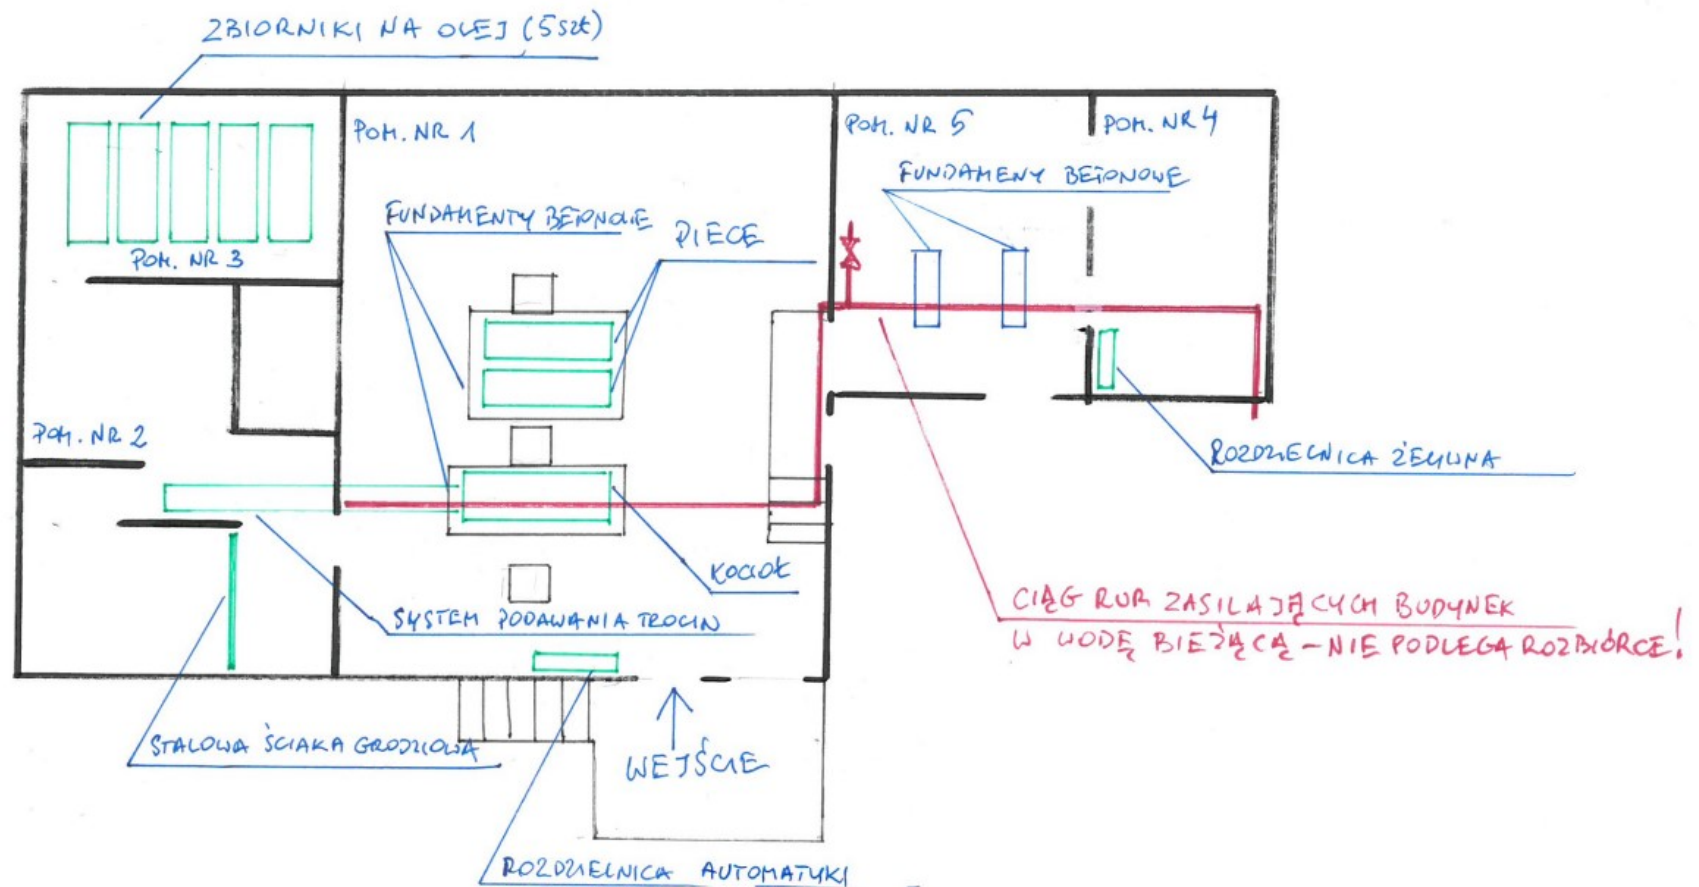 ZBIORNIKI NA OLEJ (5szt)
POM. NR 1
POM. NR 5
POM. NR 4
FUNDAMENY BETONOWE
FUNDAMENTY BETONOWE
PIECE
POM. NR 3
POM. NR 2
ROZDZIELNICA ŻELIWNA
KOCIOŁ
CIĄG RUR ZASILAJĄCYCH BUDYNEK
W WODĘ BIEŻĄCĄ - NIE PODLEGA ROZBIÓRCE!
SYSTEM PODAWANIA TROCIN
STALOWA ŚCIAKA GRODZIOWA
WEJŚCIE
ROZDZIELNICA AUTOMATYKI